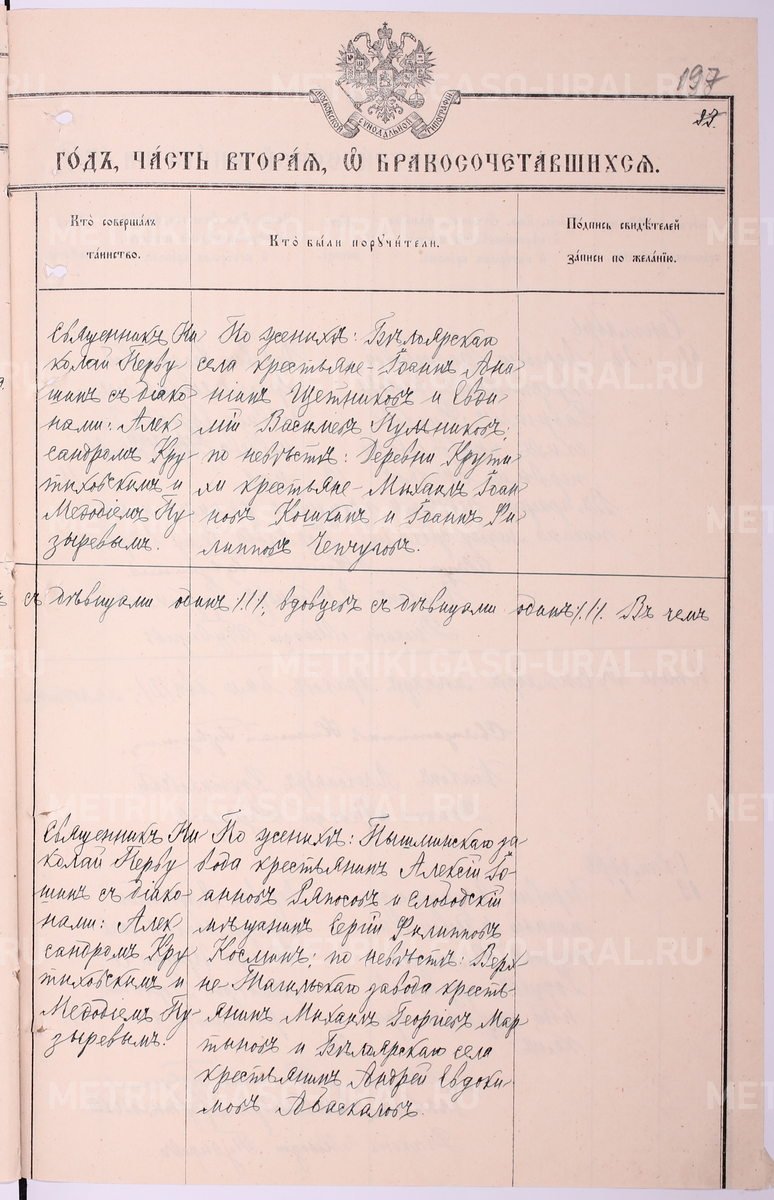 197
22.
МОСКОВСКОЙ СѴНОДАЛЬНОЙ ТИПОГРАФІИ
ГО́ДЪ, ЧА́СТЬ ВТОРА́Я, Ѽ БРАКОСОЧЕТА́ВШИХСЯ.
Кто̀ совершáлъ
та́инство.
Кто̀ бы́ли поручи́тели.
По́дпись свидѣ́телей
за́писи по жела́нїю.
Священникъ Ни
колай Перву
шинъ съ діако
нами: Алек
сандромъ Кру
тиховскимъ и
Меѳодіемъ Пу
зыревымъ.
По женихѣ: Бѣлоярскаго
села крестьяне - Іоаннъ Ана
ніинъ Щетниковъ и Евѳи
мій Васильевъ Пульниковъ;
по невѣстѣ: Деревни Крути
хи крестьяне - Михаилъ Іоан
новъ Кошкинъ и Іоаннъ Фи
липповъ Чепчуговъ.
съ дѣвицами одинъ /.1./, вдовцевъ съ дѣвицами одинъ /.1./. Въ чемъ
Священникъ Ни
колай Перву
шинъ съ діако
нами: Алек
сандромъ Кру
тиховскимъ и
Меѳодіемъ Пу
зыревымъ.
По женихѣ: Пышминскаго за
вода крестьянинъ Алексій Іо
анновъ Ряпосовъ и Слободскій
мѣщанинъ Сергій Филипповъ
Косминъ; по невѣстѣ: Верх
не Тагильскаго завода кресть
янинъ Михаилъ Георгіевъ Мар
тыновъ и Бѣлоярскаго села
крестьянинъ Андрей Евдоки
мовъ Абаскаловъ.
METRIKI.GASO-URAL.RU